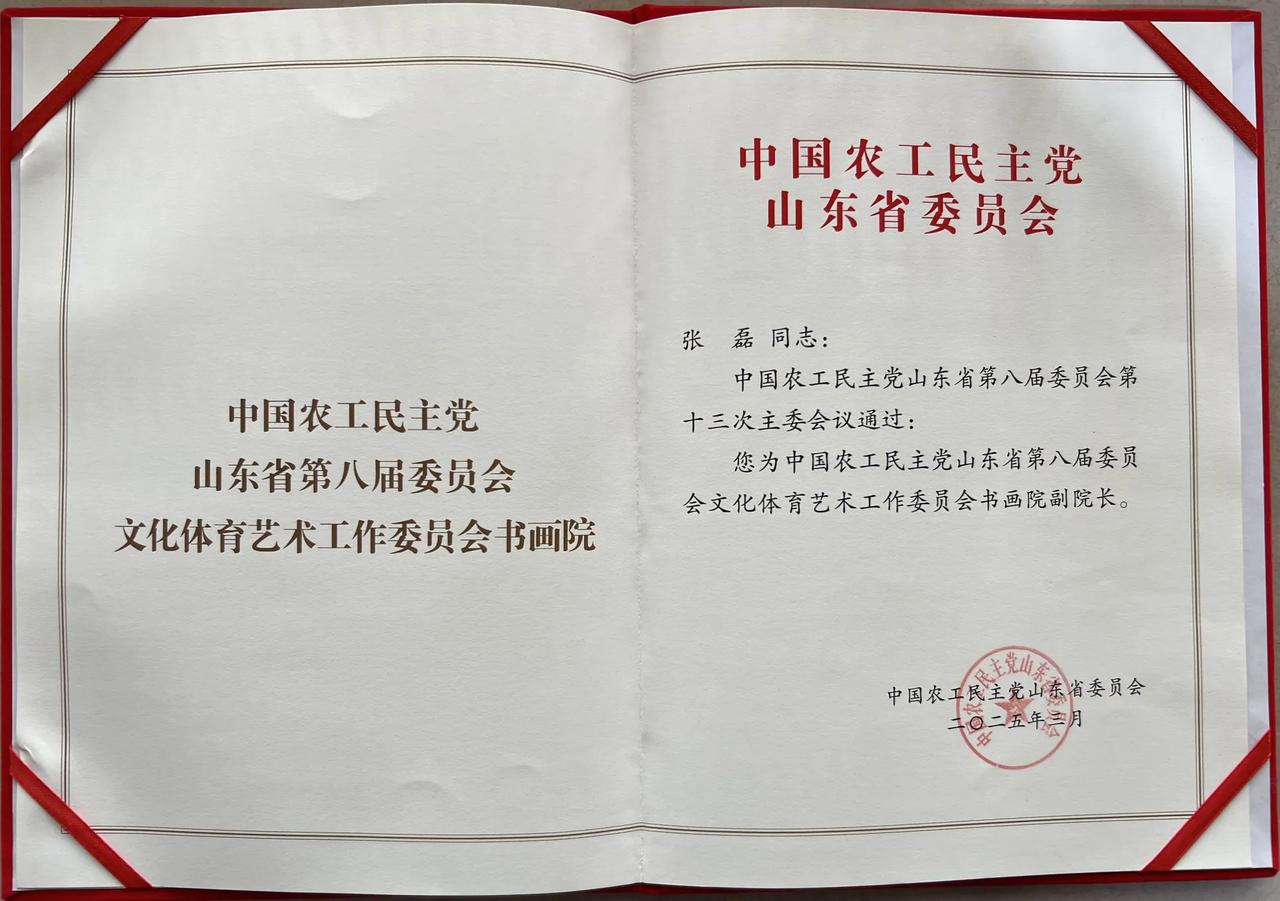 中国农工民主党
山东省第八届委员会
文化体育艺术工作委员会书画院
中国农工民主党
山东省委员会
张　磊 同志：
中国农工民主党山东省第八届委员会第
十三次主委会议通过：
您为中国农工民主党山东省第八届委员
会文化体育艺术工作委员会书画院副院长。
中国农工民主党山东省委员会
二〇二五年三月
中国农工民主党山东省委员会